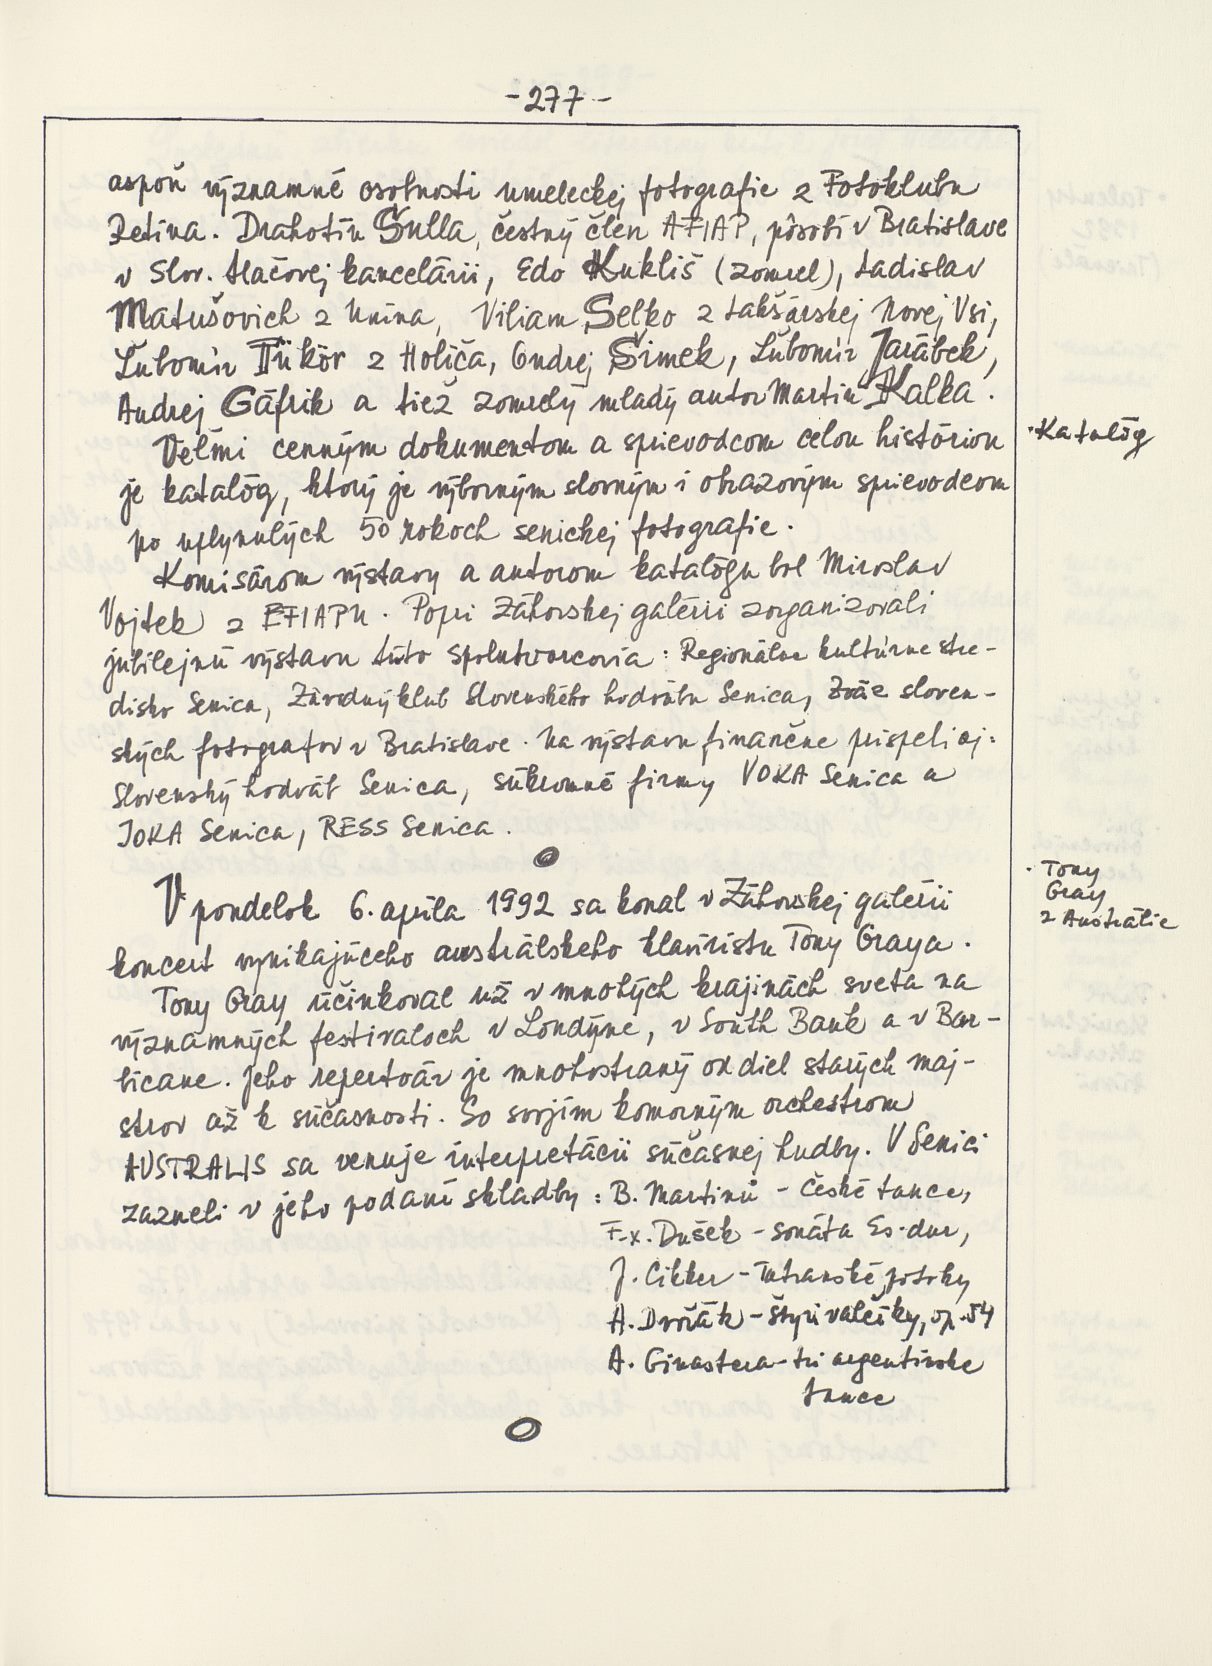 -277-
aspoň významné osobnosti umeleckej fotografie z Fotoklubu
Retina. Drahotín Šulla, čestný člen AFIAP, pôsobí v Bratislave
v Slov. tlačovej kancelárii, Edo Kukliš (zomrel), Ladislav
Matušovich z Unína, Viliam Selko z Lakšárskej Novej Vsi,
Ľubomír Tükör z Holíča, Ondrej Šimek, Ľubomír Jarábek,
Andrej Gáfrik a tiež zomrelý mladý autor Martin Kalka.
Veľmi cenným dokumentom a sprievodcom celou históriou
je katalóg, ktorý je výborným slovným i obrazovým sprievodcom
po uplynulých 50 rokoch senickej fotografie.
· Katalóg
Komisárom výstavy a autorom katalógu bol Miroslav
Vojtek z EFIAPu. Popri Záhorskej galérii zorganizovali
jubilejnú výstavu títo spolutvorcovia: Regionálne kultúrne stre-
disko Senica, Závodný klub Slovenského hodvábu Senica, Zväz sloven-
ských fotografov v Bratislave. Na výstavu finančne prispeli aj:
Slovenský hodváb Senica, súkromné firmy VOKA Senica a
JOKA Senica, RESS Senica.
V pondelok 6. apríla 1992 sa konal v Záhorskej galérii
koncert vynikajúceho austrálskeho klaviristu Tony Graya.
· Tony
Gray
z Austrálie
Tony Gray účinkoval už v mnohých krajinách sveta na
významných festivaloch v Londýne, v South Bank a v Bar-
bicane. Jeho repertoár je mnohostraný od diel starých maj-
strov až k súčasnosti. So svojím komorným orchestrom
AUSTRALIS sa venuje interpretácii súčasnej hudby. V Senici
zazneli v jeho podaní skladby: B. Martinů - České tance,
F.X. Dušek - sonáta Es-dur,
J. Cikker - Tatranské potoky
A. Dvořák - Štyri valčíky, op. 54
A. Ginastera - tri argentínske
tance